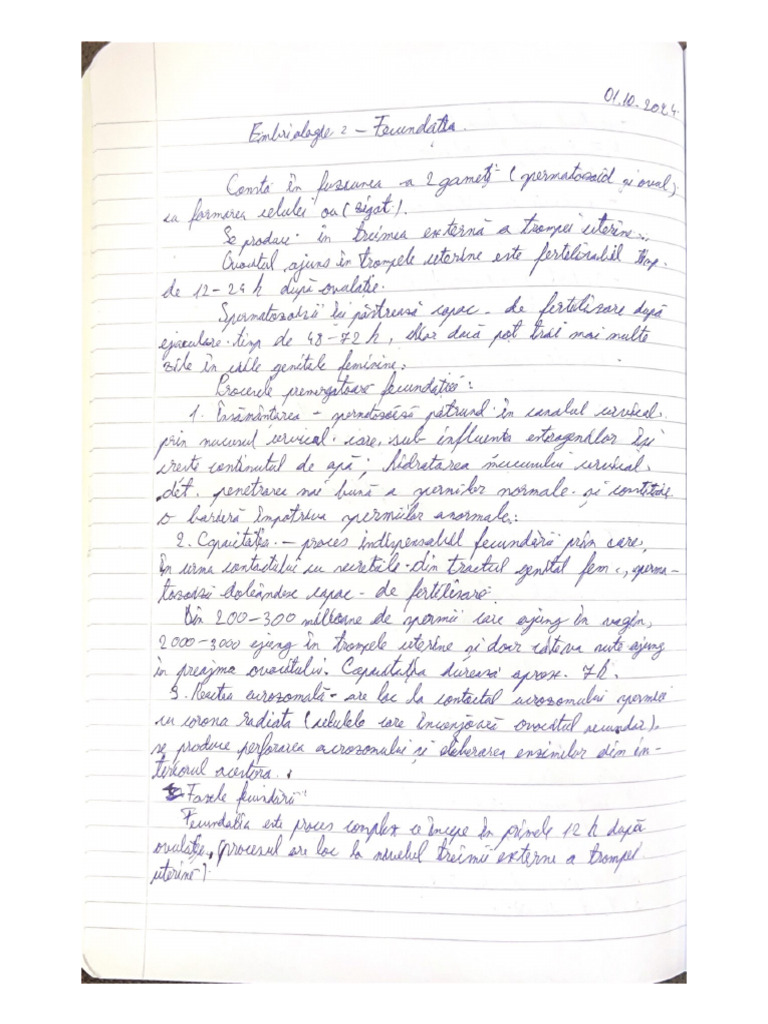 01.10.2024.
Embriologie 2 - Fecundația.
Constă în fuziunea a 2 gameți (spermatozoid și oval),
cu formarea celulei ou (zigot).
Se produce în treimea externă a trompei uterine.
Ovocitul ajuns în trompele uterine este fertilizabil timp
de 12-24 h după ovulație.
Spermatozoizii își păstrează capac. de fertilizare după
ejaculare timp de 48-72 h, chiar dacă pot trăi mai multe
zile în căile genitale feminine.
Procesele premergătoare fecundației:
1. Însămânțarea - spermatozoizii pătrund în canalul cervical,
prin mucusul cervical care, sub influența estrogenilor își
crește conținutul de apă; hidratarea mucusului cervical
det. penetrarea mai bună a spermiilor normale și constituie
o barieră împotriva spermiilor anormale.
2. Capacitația - proces indispensabil fecundării prin care,
în urma contactului cu secrețiile din tractul genital fem., sperma-
tozoizii dobândesc capac. de fertilizare.
Din 200-300 milioane de spermii care ajung în vagin,
2000-3000 ajung în trompele uterine și doar câteva sute ajung
în preajma ovocitului. Capacitația durează aprox. 7h.
3. Reacția acrozomală - are loc la contactul acrozomului spermiei
cu corona radiata (celulele care înconjoară ovocitul secundar),
se produce perforarea acrozomului și eliberarea enzimelor din in-
teriorul acestora.
Fazele fecundării:
Fecundația este proces complex ce începe în primele 12 h după
ovulație, (procesul are loc la nivelul treimii externe a trompei
uterine)